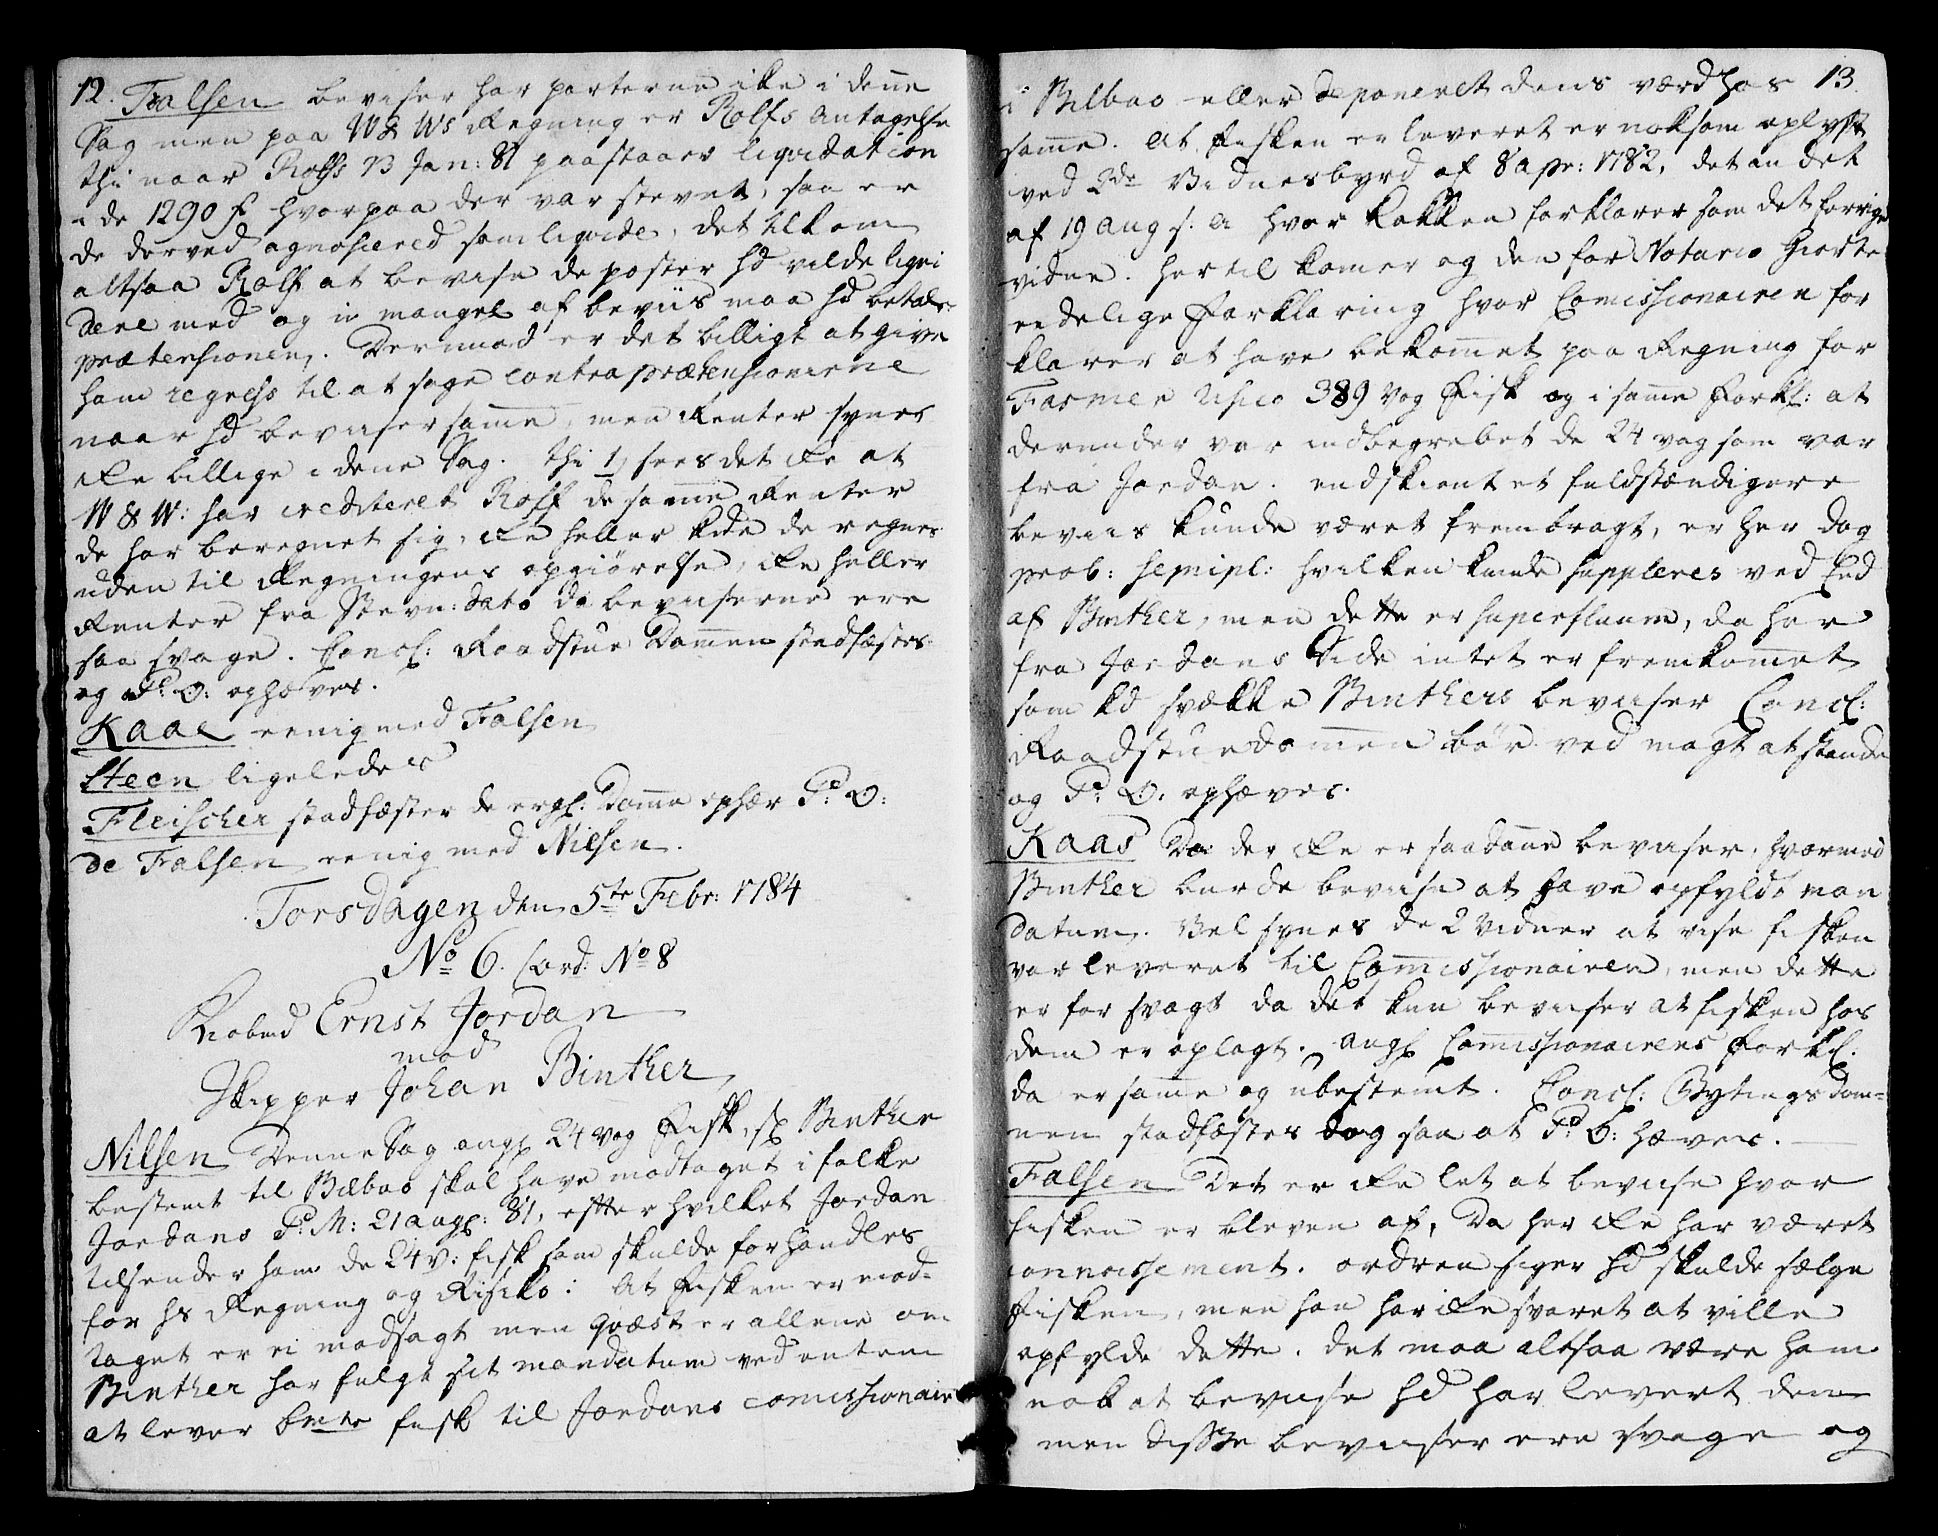 12. Falsen beviser har parterne ike i denne
Sag men paa W & Ws Regning er Rolfs Antagelse
thi naar Rolfs 13 Jan: 81 paastaaer liqvidation
i de 1290 hvorpaa der var stevnet, saa er
de derved agnoscered som liqvide, det tilkom
altsaa Rolf at bevise de poster hd vilde liqvi
dere med og in mangel af beviis maa hd betale
prætensionen. Derimod er det billigt at give
ham regress til at søge contraprætensionerne
naar hd beviser samme, men Renter synes
ike billige i denne Sag. thi 1) sees det ike at
W & W: har crediteret Rolf de samme Renter
de har beregnet sig, ike heller kde de regnes
uden til Regningens opgiørelse, ike heller
Renter fra Stevn: dato da beviserne ere
saa svage. Concl: Raadstue Dommen stadfæstes
og P: O: ophæves.
Kaas eenig med Falsen
Steen ligeledes
Fleischer stadfæster de ergl: Domme ophæv P: O:
de Falsen eenig med Nilsen.
Torsdagen den 5te Febr: 1784
No 6. Cord: No 8
Kiøbmd Ernst Jordan
mod
Skipper Johan Binther
Nilsen Denne Sag angl 24 vog Fisk, sl Binther
bestemt til Bilbao skal have modtaget i følke
Jordans P: M: 21 augs: 81, efter hvilket Jordan
tilsender ham de 24 v: fisk som skulde forhandles
for hs Regning og Risico: At Fisken er mod-
taget er ei modsagt men qvæst er allene om
Binther har fulgt sit mandatum ved entem
at lever bmte fisk til Jordans comissionair
13.
i Bilbao eller deponeret dens værd hos
samme. At Fisken er leveret er noksom oplyst
ved 2de Vidnesbyrd af 8 apr: 1782, det andet
af 19 aug s. a hvor Kokken forklarer som det forrige
vidne. hertil komer og den for Notario giorte
eedelige Forklaring hvor Comissionairen for
klarer at have bekommet paa Regning for
Fasmer Usico 389 vog Fisk og i samme Forkl: at
derunder var indbegrebet de 24 vog som var
fra Jordan. endskiønt et fuldstændigere
beviis kunde været frembragt, er her dog
prob: semipl: hvilken kunde suppleres ved Eed
af Binther, men dette er superfluum, da her
fra Jordans Side intet er fremkommet
som kd svække Binthers beviser Concl:
Raadstuedommen bør ved magt at stande
og P: O: ophæves.
Kaas Da der ike er saadanne beviser, hvormed
Binther burde bevise at have opfyldt man
datum. Vel synes de 2 Vidner at vise fisken
var leveret til Comissionairen, men dette
er for svagt da det kun beviser at fisken hos
dem er oplagt. angl Comissionairens Forkl:
da er samme og ubestemt. Concl: Bytings dom-
men stadfæstes dog saa at P: O: hæves.
Falsen Det er ike let at bevise hvor
fisken er bleven af, da her ike har været
connossement. ordren siger hd skulde sælge
fisken, men han har ike svaret at ville
opfylde dette. det maa altsaa være ham
nok at bevise hd har levert dem
men disse beviser ere svage og